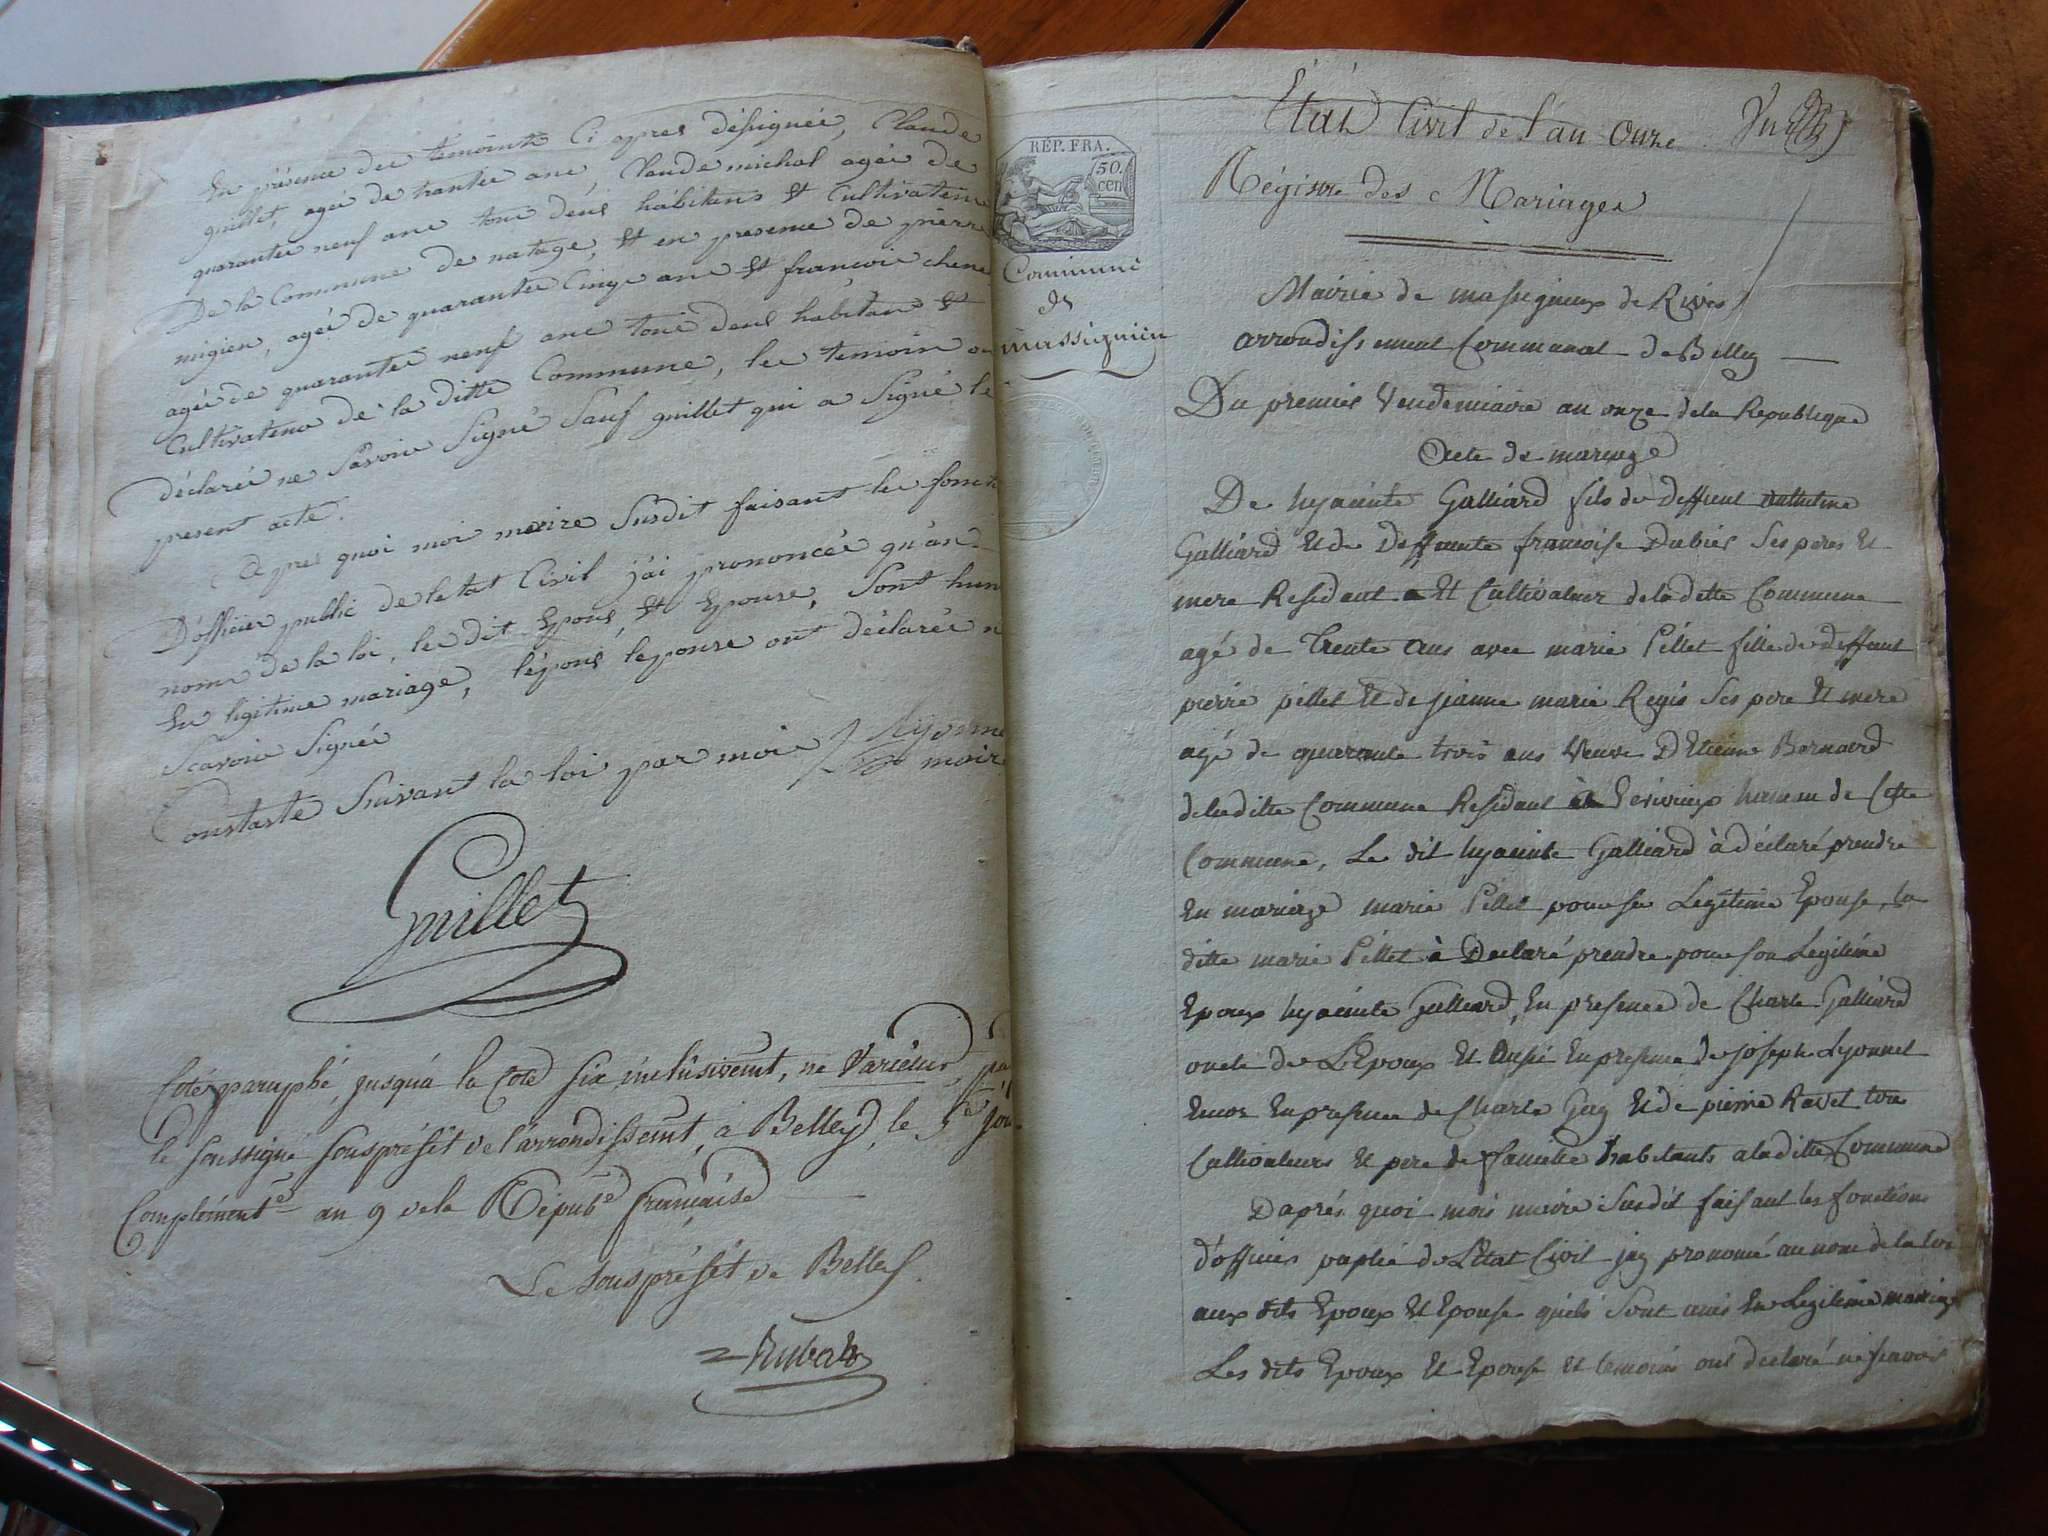 En présence des temoints Ci apres désignée, Claude
guillet, agée de trantes ans Claude michal agée de
quarantes neuf ans tous deus hábitans et Cultivateurs
De la Commune de natage, et en presence de pierre
migien, agée de quarantes Cinqs ans et francois chene
agée de quarantes neuf ans tous deus hábitans et
Cultivateurs de la ditte Commune, les temoins on
déclarée ne Savoir Signé Sauf guillet qui a Signé le
present acte.
Apres quoi moi maire Susdit faisant les foncti
D'officier public de letat Civil j'ai prononcée qu'au
nome de la loi, les dit Epous, et Epouse, Sont huni
En ligitime mariage, lépous lepouse ont déclarée n
Scavoir Signée
Constaste Suivant la loi par moi lyonne
maire
Guillet
Coté paraphé, jusqu'à la Cote Six inclusivemt, ne Varietur, pa
le soussigné souspréfêt de l'arrondissemt, à Belley, le 5e jou
Complémentre an 9 de la Répube française
Le souspréfêt de Belley.
Rubat
RÉP. FRA.
50.
cen
Commune
de
massignieu
État Civil de l'an Onze
Régistre des Mariages
Mairie de massignieux de Rives
arrondissement Communal de Belley
Du premier Vendemiaire an onze de la Republique
Acte de mariage
De hyacinte Galliard fils de deffunt
Galliard et de Deffunte francoise Dubier Ses peres Et
mere Residant Et Cultivateur deladitte Commune
agé de Trente ans avec marie Pillet fille de deffunt
pierre pillet Et de jeanne marie Regis Ses pere Et mere
agé de quarente trois ans veuve DEtienne Bernard
deladitte Commune Residant à Ecrivieux hameau de Cette
Commune, Le dit hyacinte Galliard à déclaré prendre
En mariage marie Pillet pour sa Legitime Epouse, la
ditte marie Pillet à Declaré prendre pour son Legitime
Epoux hyacinte Galliard, En presence de Charle Galliard
oncle de LEpoux Et Ausi En presence de joseph Lyonnet
Encor En presence de Charle Guy Et de pierre Ravet tous
Cultivateurs Et pere de famille habitants aladitte Commune
Daprés quoi mois maire Susdit faisant les fonctions
d'officier de LEtat Civil jay prononcé au nom de la loi
aux dits Epoux Et Epouse quils Sont unis En Legitime mariage
Les dits Epoux Et Epouse et temoins ont declaré ne scavoir